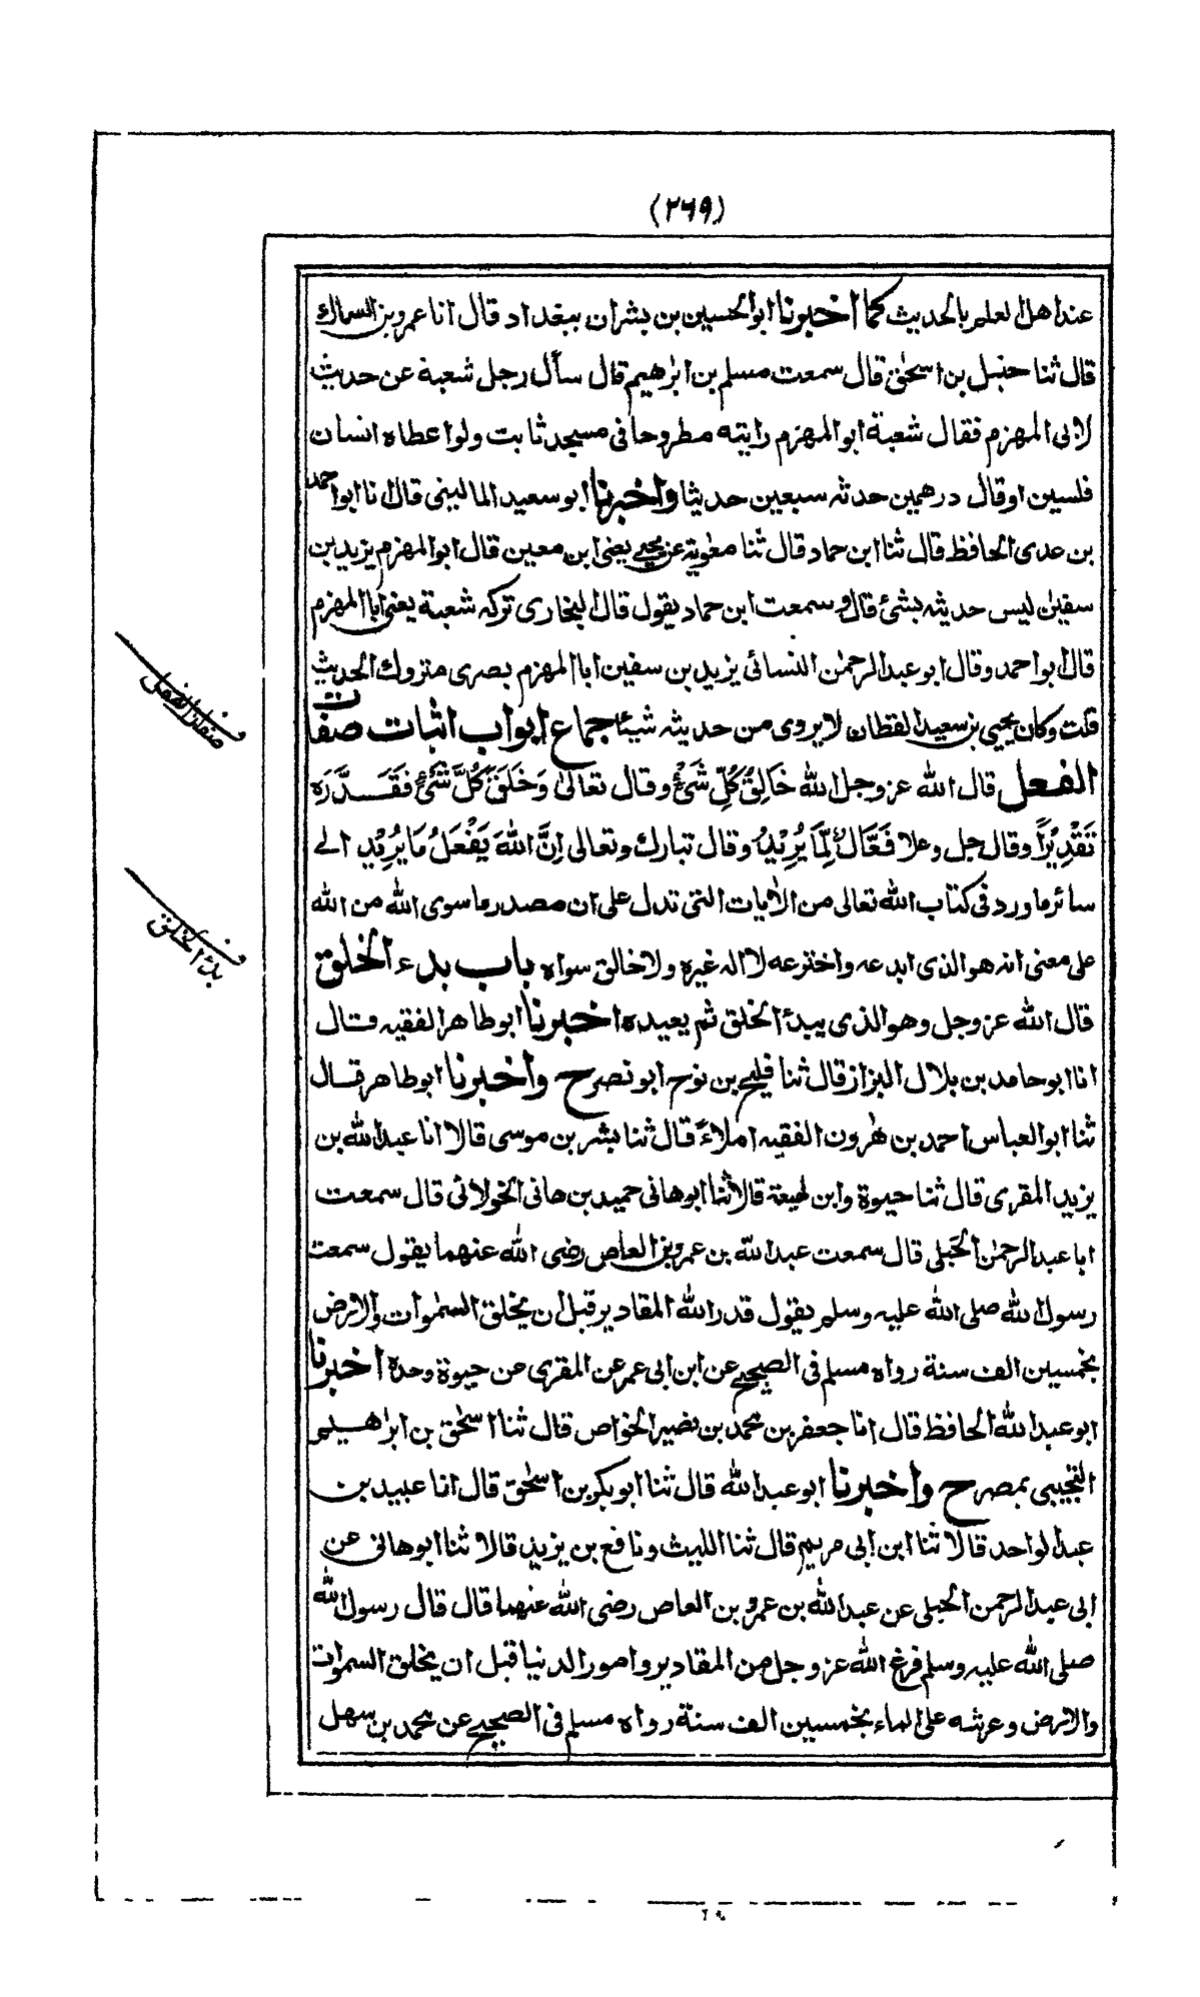 (٢٦٩)
عند اهل العلم بالحديث كما اخبرنا ابو الحسين بن بشران ببغداد قال انا عمرو بن السماك
قال ثنا حنبل بن اسحٰق قال سمعت مسلم بن ابرٰهيم قال سأل رجل شعبة عن حديث
لابى المهزم فقال شعبة ابو المهزم رايته مطروحا فى مسجد ثابت ولو اعطاه انسان
فلسين اوقال درهمين حدثه سبعين حديثا واخبرنا ابو سعيد المالينى قال انا ابو احمد
بن عدى الحافظ قال ثنا ابن حماد قال ثنا معٰوية عن يحيى يعنى ابن معين قال ابو المهزم يزيد بن
سفيٰن ليس حديثه بشئ قال وسمعت ابن حماد يقول قال البخارى تركه شعبة يعنى ابا المهزم
قال ابو احمد وقال ابو عبد الرحمٰن النسائى يزيد بن سفين ابا المهزم بصرى متروك الحديث
قلت وكان يحيى بن سعيد القطان لا يروى من حديثه شيئا جماع ابواب اثبات صفات
الفعل قال الله عز وجل الله خَالِقُ كُلِّ شَئٍ وقال تعالى وَخَلَقَ كُلَّ شَئٍ فَقَدَّرَه
تَقْدِيْرًا وقال جل وعلا فَعَّالٌ لِّمَا يُرِيْدُ وقال تبارك وتعالى اِنَّ اللهَ يَفْعَلُ مَا يُرِيْد الى
سائر ما ورد فى كتاب الله تعالى من الاٰيات التى تدل على ان مصدر ما سوى الله من الله
على معنى انه هو الذى ابدعه واخترعه لا اله غيره ولا خالق سواه باب بدء الخلق
قال الله عز وجل وهو الذى يبدئ الخلق ثم يعيده اخبرنا ابو طاهر الفقيه قال
انا ابو حامد بن بلال البزاز قال ثنا فليح بن نوح ابو نصر ح واخبرنا ابو طاهر قال
ثنا ابو العباس احمد بن هٰرون الفقيه املاءً قال ثنا بشر بن موسى قالا انا عبد الله بن
يزيد المقرى قال ثنا حيوة وابن لهيعة قالا ثنا ابو هانى حميد بن هانى الخولانى قال سمعت
ابا عبد الرحمٰن الحَبلى قال سمعت عبد الله بن عمرو بن العاص رضى الله عنهما يقول سمعت
رسول الله صلى الله عليه وسلم يقول قدر الله المقادير قبل ان يخلق السمٰوات والارض
بخمسين الف سنة رواه مسلم فى الصحيح عن ابن ابى عمر عن المقرى عن حيوة وحده اخبرنا
ابو عبد الله الحافظ قال انا جعفر بن محمد بن نصير الخواص قال ثنا اسحٰق بن ابراهيم
التجيبى بمصر ح واخبرنا ابو عبد الله قال ثنا ابو بكر بن اسحٰق قال انا عبيد بن
عبد الواحد قالا ثنا ابن ابى مريم قال ثنا الليث ونافع بن يزيد قالا ثنا ابو هانى عن
ابى عبد الرحمن الحبلى عن عبد الله بن عمرو بن العاص رضى الله عنهما قال قال رسول الله
صلى الله عليه وسلم فرغ الله عز وجل من المقادير وامور الدنيا قبل ان يخلق السموات
والارض وعرشه على الماء بخمسين الف سنة رواه مسلم فى الصحيح عن محمد بن سهل
صفات الفعل
بدء الخلق